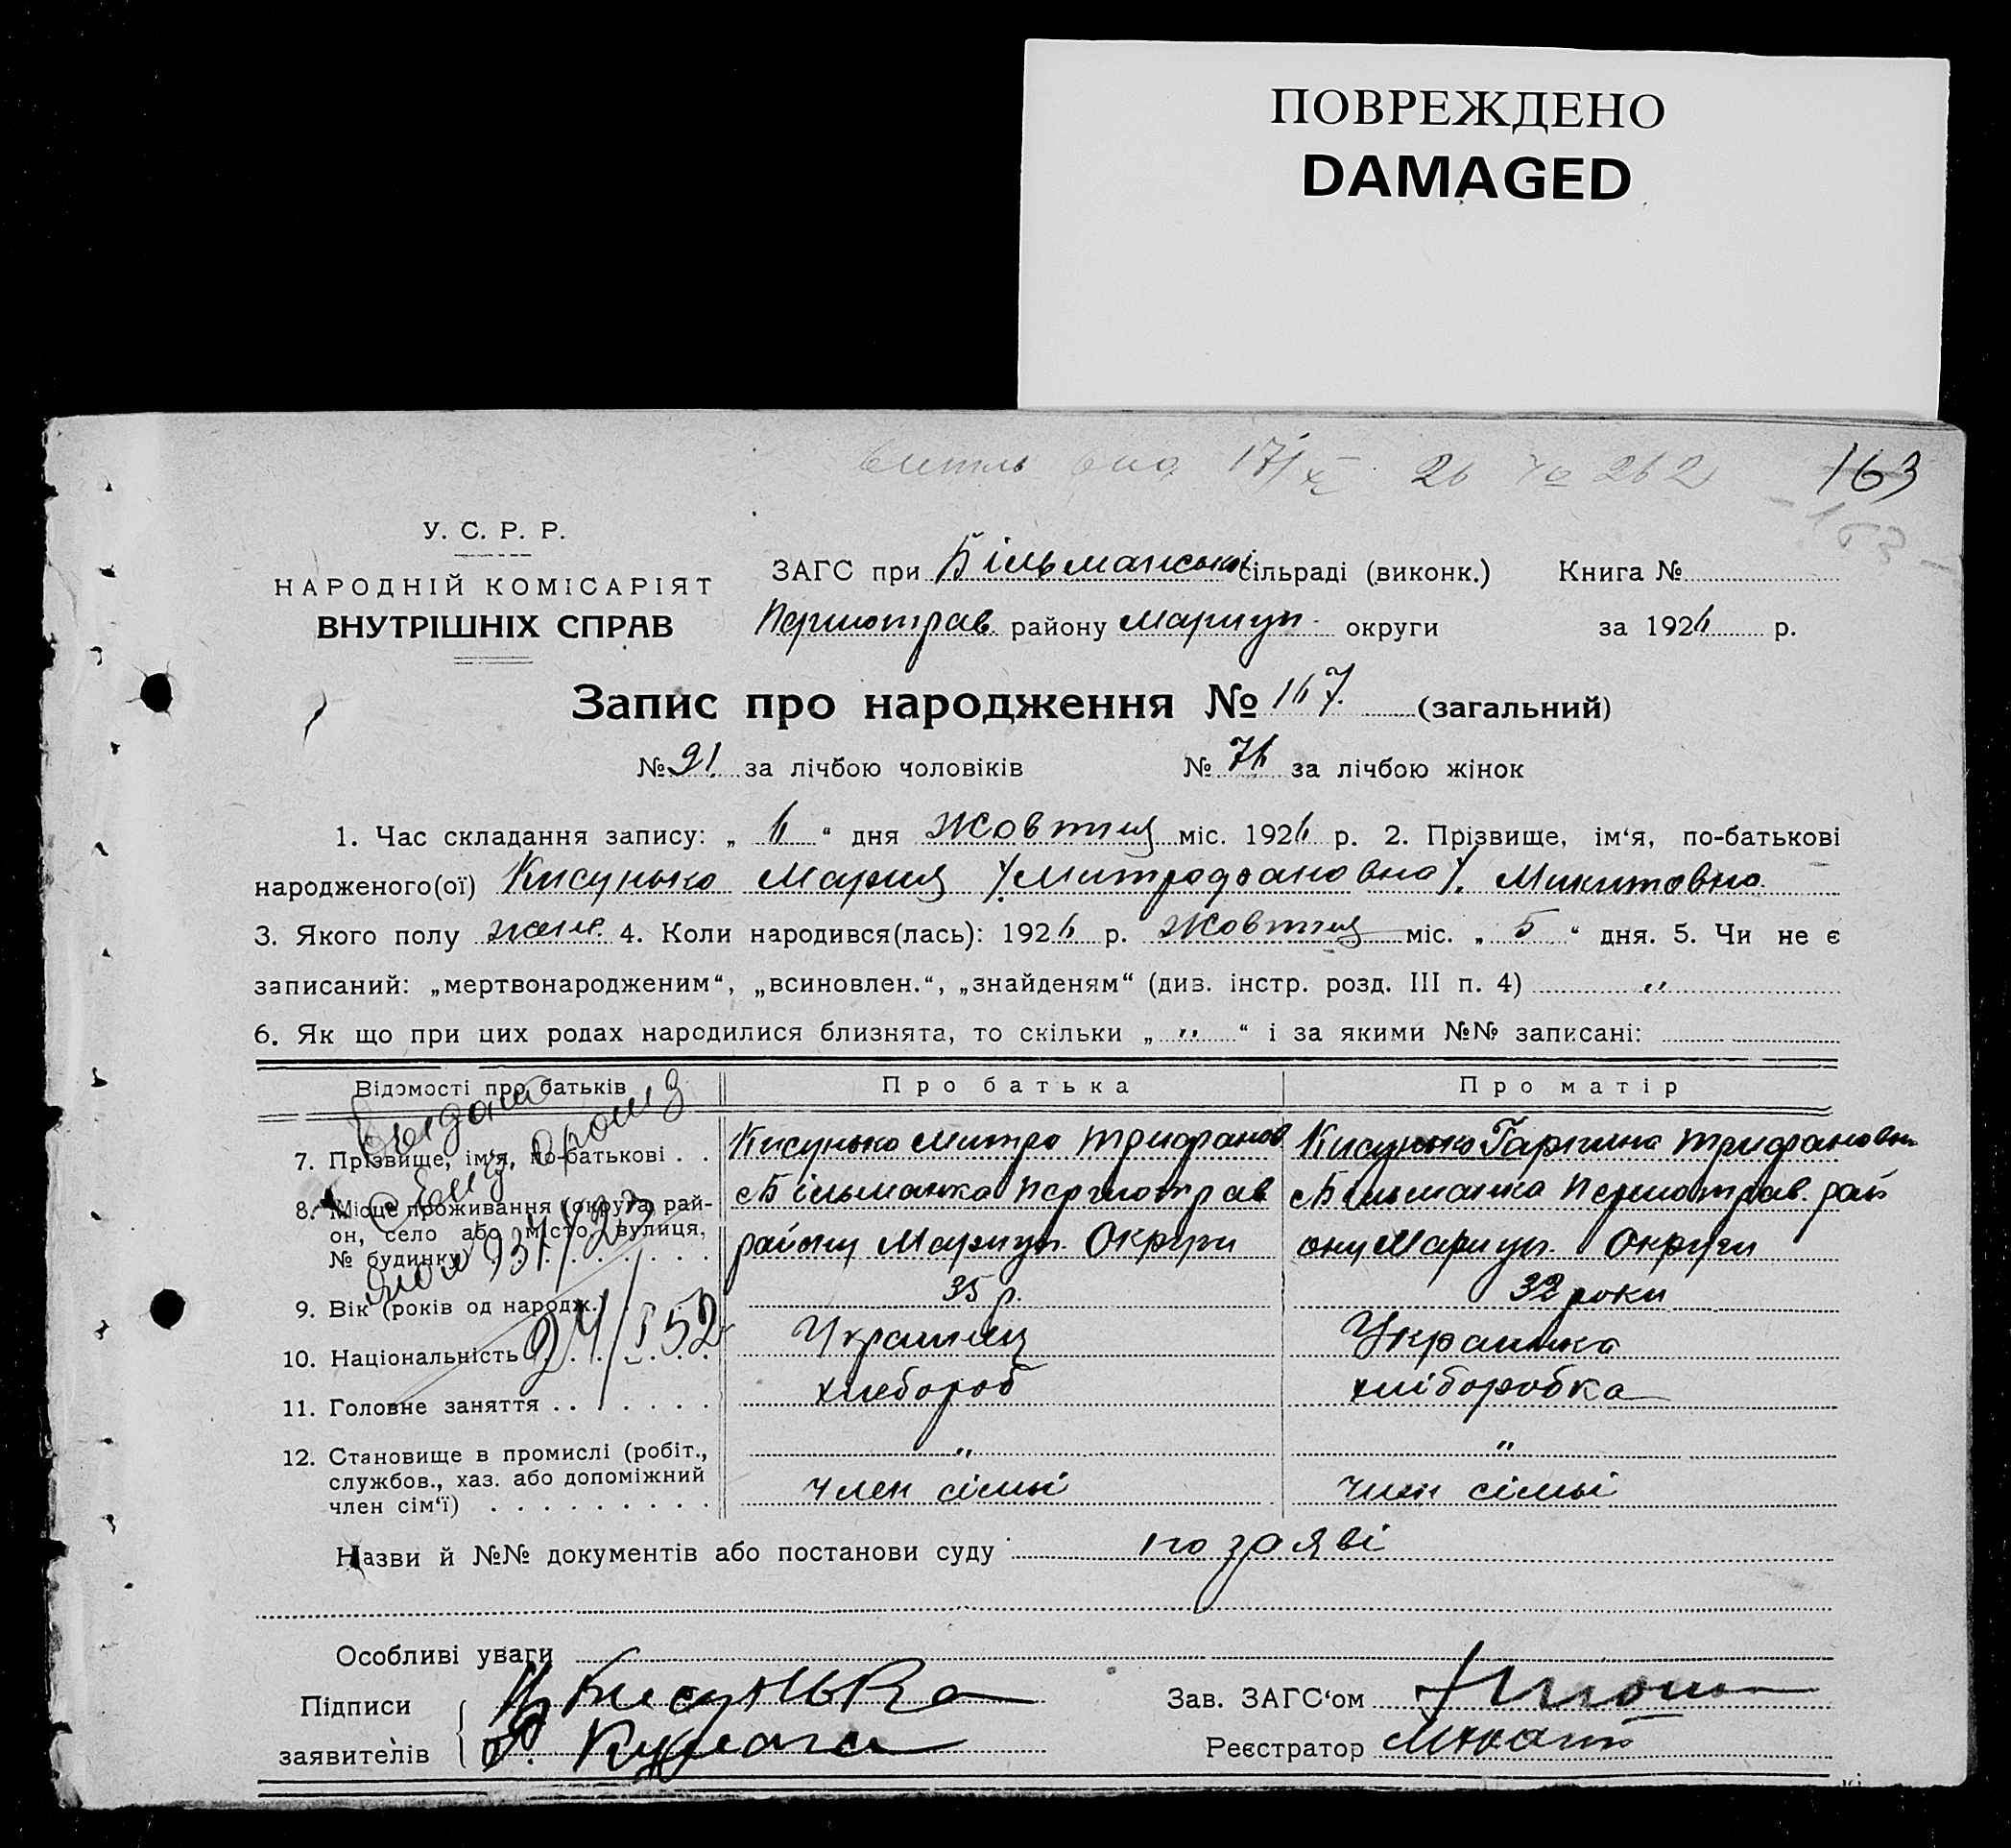 ПОВРЕЖДЕНО
DAMAGED
17/X 26 262
163
163
У. С. Р. Р.
НАРОДНІЙ КОМІСАРІЯТ
ВНУТРІШНІХ СПРАВ
ЗАГС при Більманській сільраді (виконк.) Книга №
Першотрав. району Маріуп. округи за 1926 р.
Запис про народження № 167. (загальний)
№ 91. за лічбою чоловіків № 76 за лічбою жінок
1. Час складання запису: „ 6 “ дня Жовтня міс. 1926 р. 2. Прізвище, ім‘я, по-батькові
народженого(ої) Кисунько Мария /Митрофановна/. Микитовна
3. Якого полу жін. 4. Коли народився(лась): 1926 р. Жовтня міс. „ 5 “ дня. 5. Чи не є
записаний: „мертвонародженим“, „всиновлен.“, „знайденям“ (див. інстр. розд. III п. 4) „
6. Як що при цих родах народилися близнята, то скільки „ „ “ і за якими №№ записані:
Відомості про батьків Про батька Про матір
7. Прізвище, ім‘я, по-батькові . . Кисунько Митро Трифанов Кисунько Гарпина Трифановна
8. Місце проживання (округа, рай-
он, село або місто, вулиця,
№ будинку)
с Більманка Першотрав
району Маріуп. Округи
с Більманка Першотрав. рай
ону Маріуп. Округи
9. Вік (років од народж.) 35 р. 32 роки
10. Національність Украинец Украинка
11. Головне заняття . . . . . . . хлебороб хліборобка
12. Становище в промислі (робіт., „ „
службов., хаз. або допоміжний
член сім‘ї) . . . . . . . . . член сімьі член сімьі
24/I 52
Назви й №№ документів або постанови суду по заяві
Особливі уваги
Підписи Кисунька Зав. ЗАГС‘ом
заявителів Реєстратор